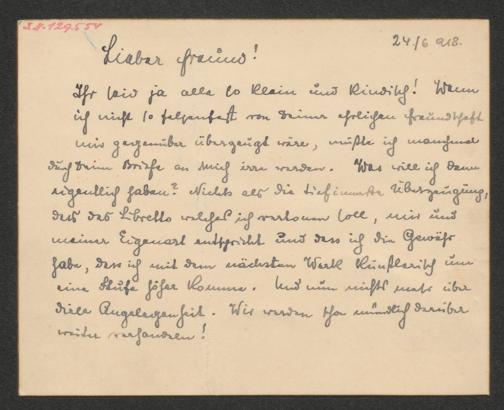 I.N. 129.554
24/6 918.
Lieber Freund!
Ihr seid ja alle so klein und kindisch! Wenn
ich nicht so felsenfest von Deiner ehrlichen Freundschaft
mir gegenüber überzeugt wäre, müßte ich manchmal
durch Deine Briefe an mich irre werden. Was will ich denn
eigentlich haben? Nichts als die tiefinnerste Überzeugung,
dass das Libretto welches ich vertonen soll, mir und
meiner Eigenart entspricht und dass ich die Gewähr
habe, dass ich mit dem nächsten Werk künstlerisch um
eine Stufe höher komme. Und nun nichts mehr über
diese Angelegenheit. Wir werden schon mündlich darüber
weiter verhandeln!